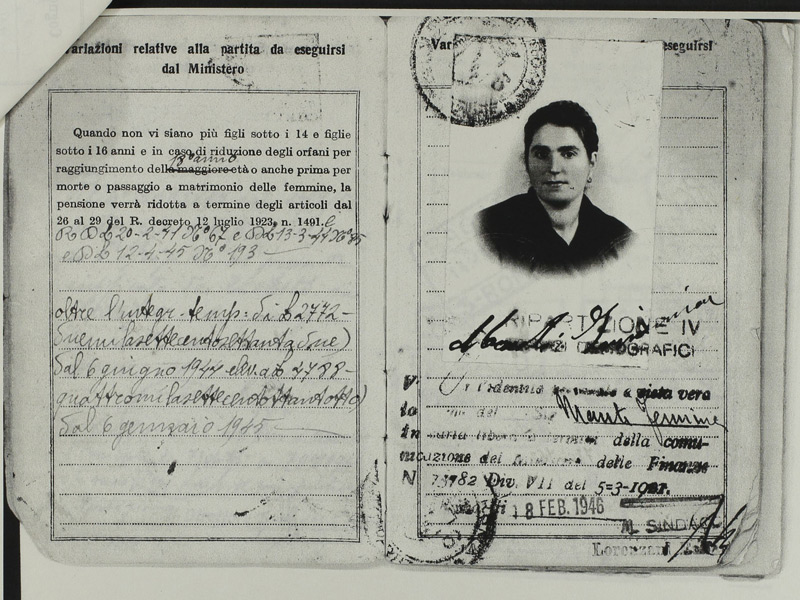 Variazioni relative alla partita da eseguirsi
dal Ministero
Quando non vi siano più figli sotto i 14 e figlie
sotto i 16 anni e in caso di riduzione degli orfani per
18° anno
raggiungimento della maggiore età o anche prima per
morte o passaggio a matrimonio delle femmine, la
pensione verrà ridotta a termine degli articoli dal
26 al 29 del R. decreto 12 luglio 1923, n. 1491.
R D L 20-2-41 N° 67 e DL 13-3-44 N° 85
e DL 12-4-45 N° 193
oltre l'integr. temp: di L 2772-
duemilasettecentosettantadue)
dal 6 giugno 1944 elev. ad 4788-
quattromilasettecentottantotto)
dal 6 gennaio 1945
Var eseguirsi
RIPARTIZIONE IV
DEMOGRAFICI
a vista vera
la del
In della comu-
nicazione del delle Finanze
N 73782 Div. VII del 5-3-
18 FEB. 1946
IL SINDACO